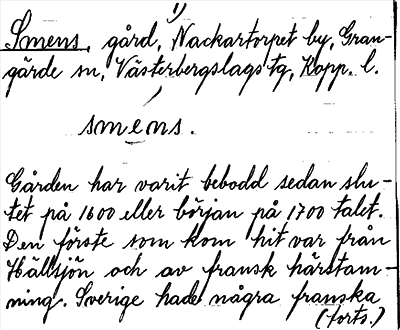 1)
Smens, gård, Nackartorpet by, Gran-
gärde sn, Västerbergslags tg, Kopp. l.
smens.
Gården har varit bebodd sedan slu-
tet på 1600 eller början på 1700 talet.
Den förste som kom hit var från
Hällsjön och av fransk härstam-
ning. Sverige hade några franska
(forts.)